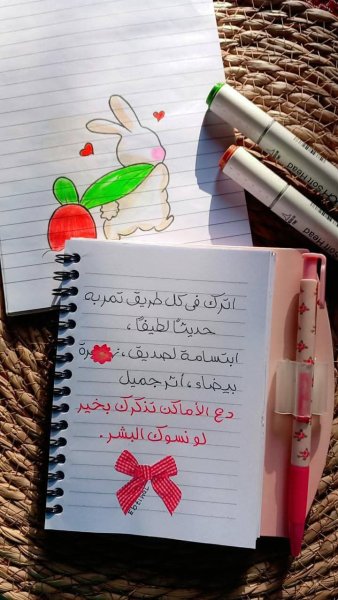 اترك في كل طريق تمر به
حديثاً لطيفاً ،
ابتسامة لصديق ،
بيضاء ، أثر جميل
دع الأماكن تذكرك بخير
لو نسوك البشر .